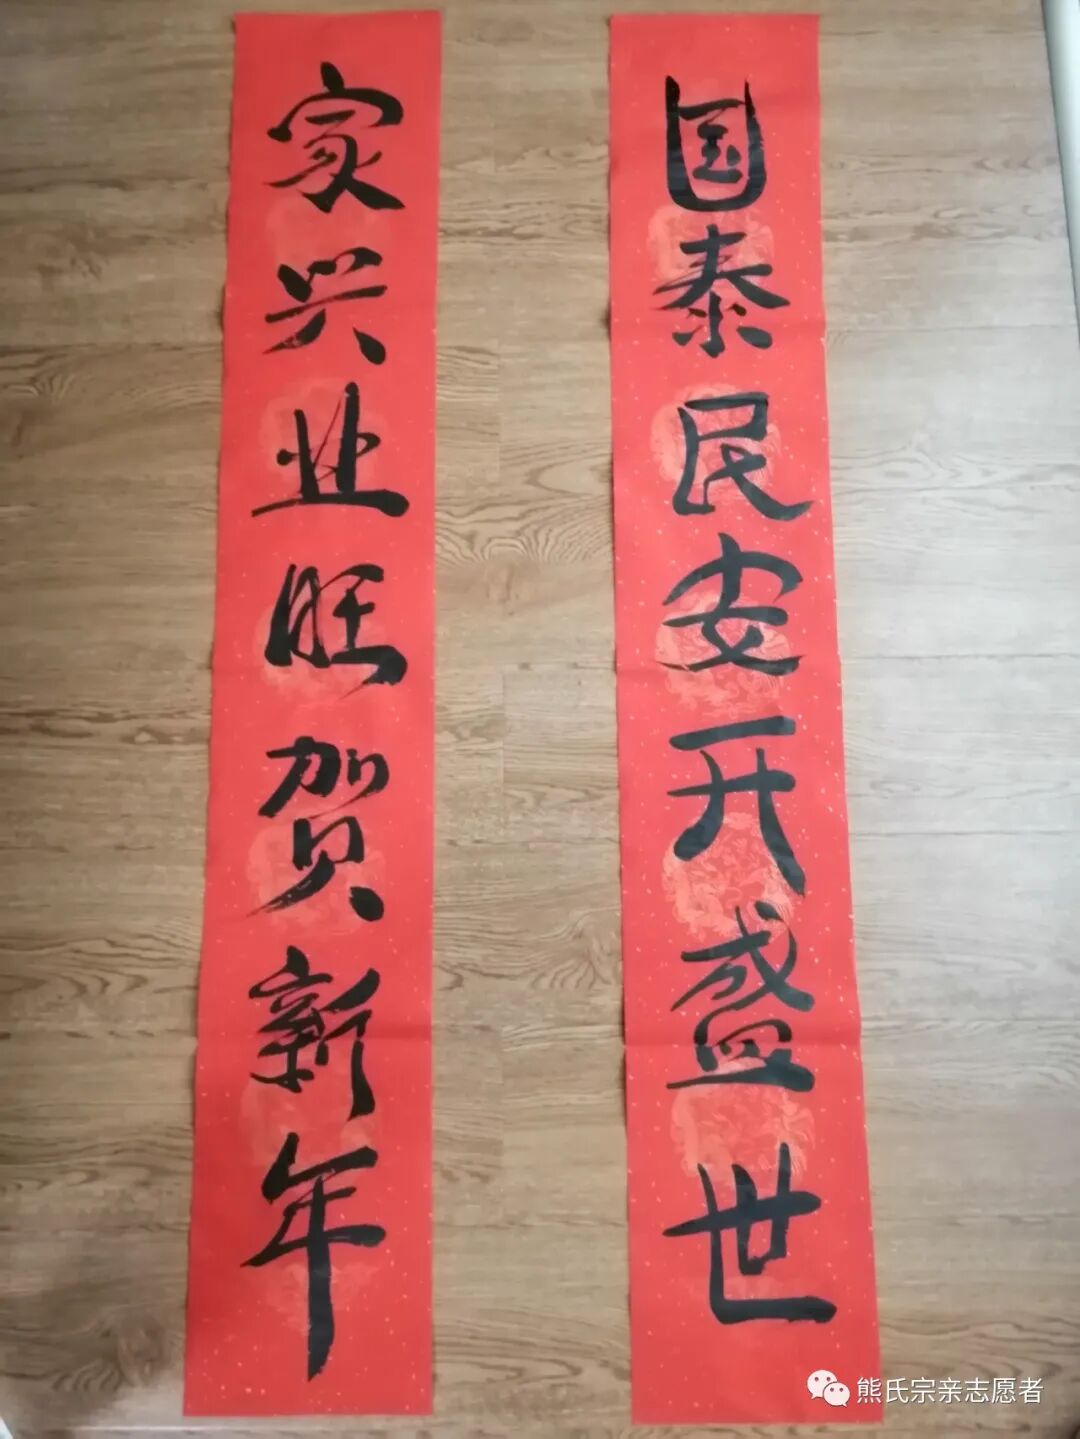 国泰民安开盛世
家兴业旺贺新年
熊氏宗亲志愿者